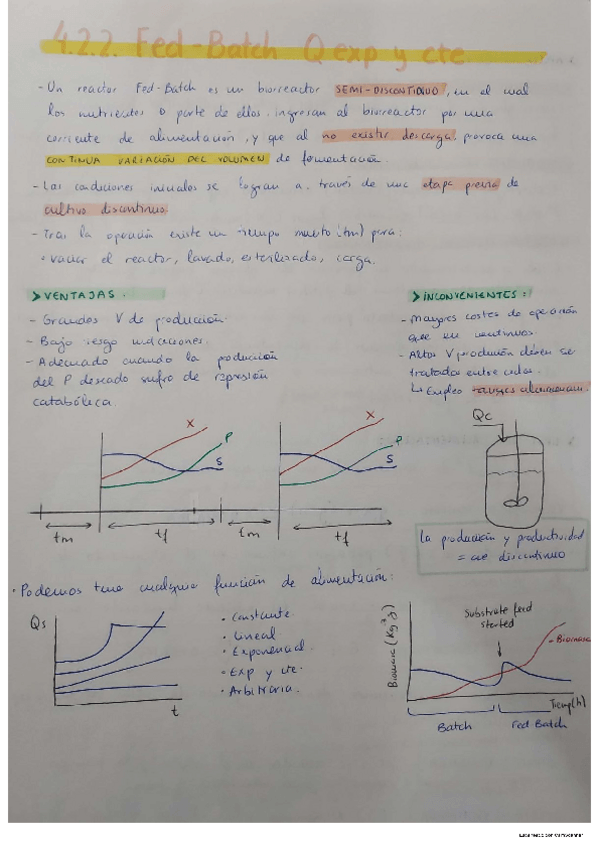 4.2.2. Fed-Batch Q exp y cte
- Un reactor Fed-Batch es un biorreactor SEMI-DISCONTINUO, en el cual
los nutrientes o parte de ellos ingresan al biorreactor por una
corriente de alimentación, y que al no existir descarga, provoca una
CONTINUA VARIACIÓN DEL VOLUMEN de fermentación.
- Las condiciones iniciales se logran a través de una etapa previa de
cultivo discontinuo.
- Tras la operación existe un tiempo muerto (tm) para:
• vaciar el reactor, lavado, esterilizado, carga.
> VENTAJAS:
- Grandes V de producción.
- Bajo riesgo
- Adecuado cuando la producción
del P deseado sufre de represión
catabólica.
> INCONVENIENTES:
- Mayores costes de operación
que en continuos.
- Altos V producción deben ser
tratados entre
↳ Empleo
X
P
S
tm
tf
tm
X
P
S
tf
Qc
La producción y productividad
= que discontinuo
• Podemos tener cualquier función de alimentación:
Qs
t
• Constante
• Lineal
• Exponencial
• Exp y cte
• Arbitraria
Substrate feed
started
Biomasa
Tiemp(h)
Batch
Fed Batch